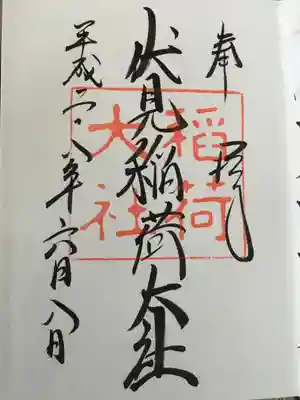 奉拝
伏見稲荷大社
稲荷
大社
平成二十八年六月八日